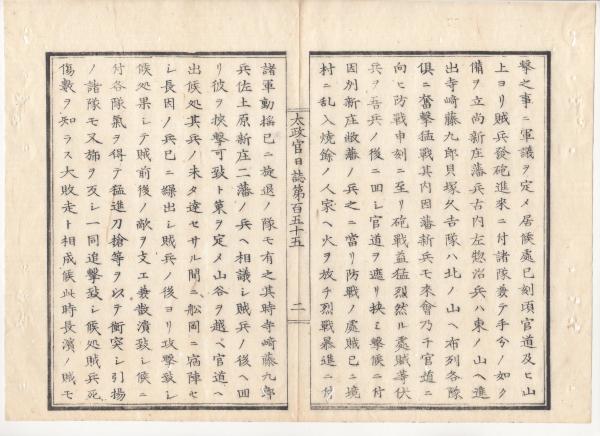 撃之事ニ軍議ヲ定メ居候處已刻頃官道及ヒ山
上ヨリ賊兵發砲進來ニ付諸隊兼テ手兮ノ如ク
備ヲ立尚新庄藩兵古内左惣治兵ハ東ノ山ヘ進
出寺崎藤九郎貝塚久吉隊ハ北ノ山ヘ布列各隊
倶ニ奮撃猛戰其内因藩新兵モ來會乃チ官道ニ
向ヒ防戰申刻ニ至リ砲戰益猛烈然ル處賊等伏
兵ヲ吾兵ノ後ニ回シ官道ヲ遮リ挾ミ撃候ニ付
因別新庄敝藩ノ兵之ニ當リ防戰ノ處賊已ニ境
村ニ乱入燒餘ノ人家ヘ火ヲ放チ烈戰暴進ニ付
太政官日誌第百五十五
二
諸軍動揺已ニ旋退ノ隊モ有之其時寺崎藤九郎
兵佐上原新庄二藩ノ兵ヘ相議シ賊兵ノ後ヘ回
リ彼ヲ挾撃可致ト策ヲ定メ山谷ヲ越ヘ官道ヘ
出候處其兵ノ未タ達セサル間ニ舩岡ニ宿陣セ
シ長因ノ兵已ニ繰出シ賊兵ノ後ヨリ攻撃致シ
候處果シテ賊前後ノ敵ヲ支エ兼散潰致シ候ニ
付各隊氣ヲ得テ猛進刀槍等ヲ以テ衝突シ引揚
ノ諸隊モ又旆ヲ反シ一同追撃致シ候處賊兵死
傷數ヲ知ラス大敗走ト相成候此時長濱ノ賊モ